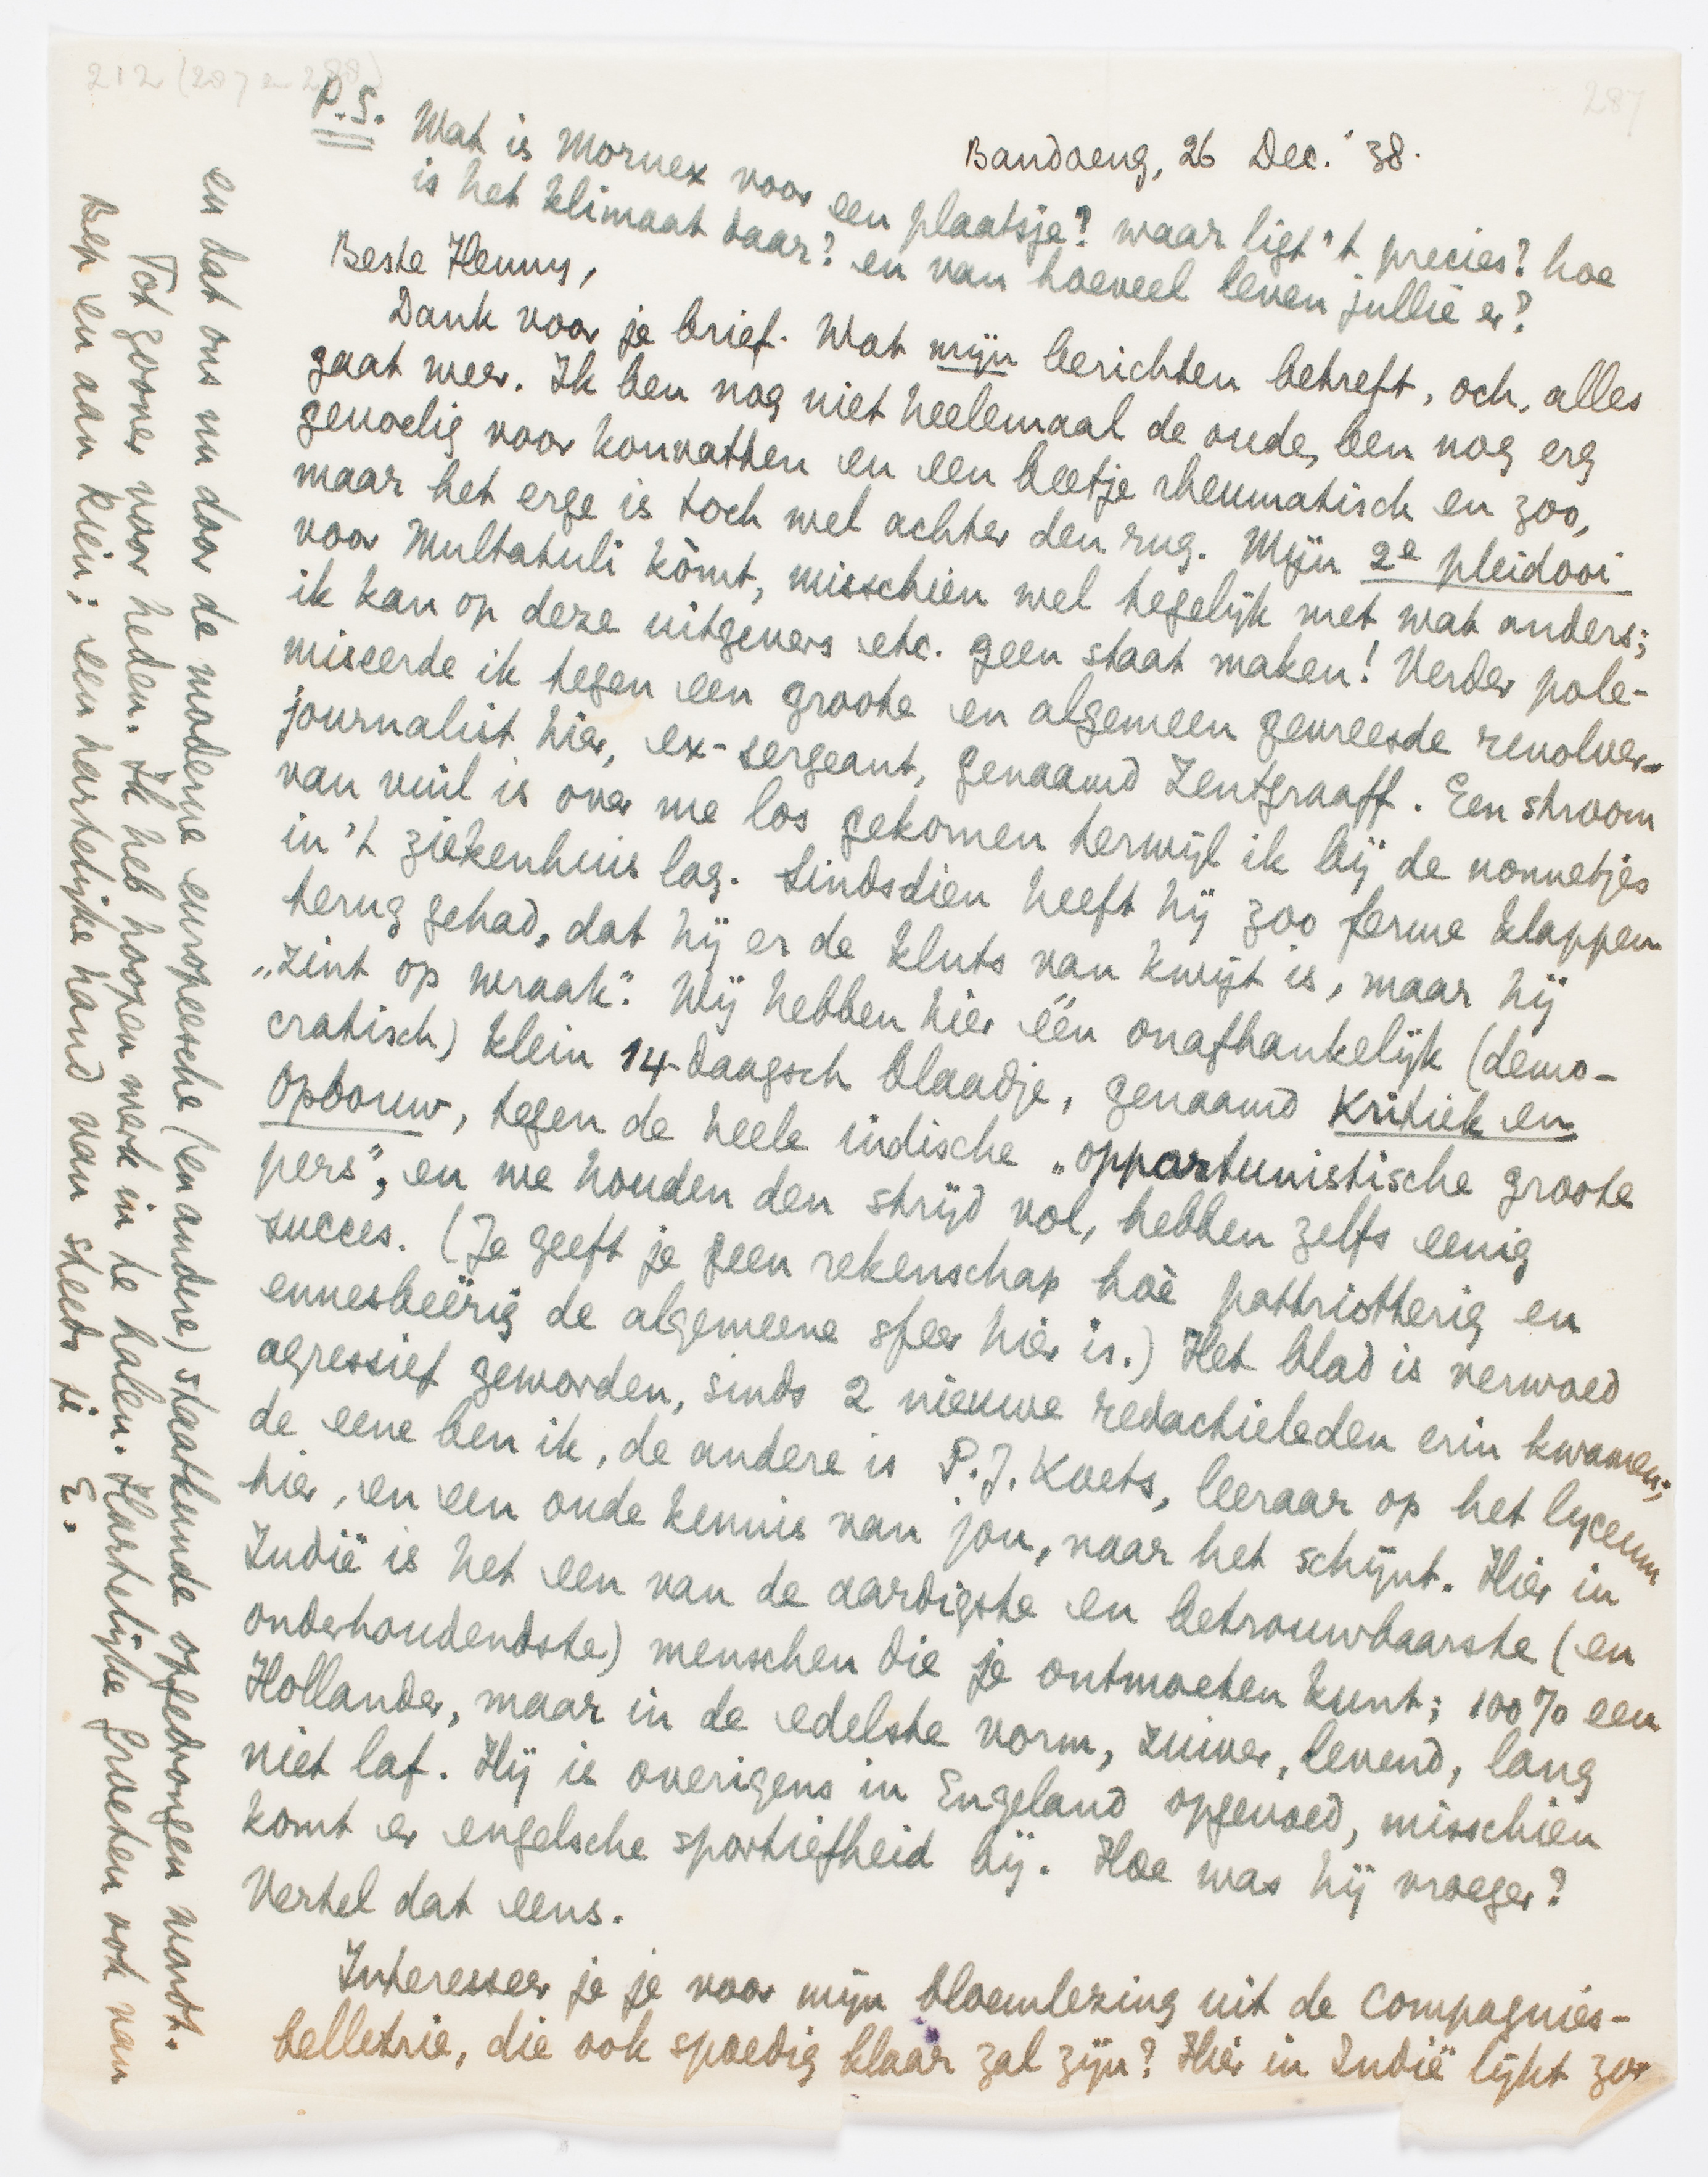 212 (287 en 288)
287
Bandoeng, 26 Dec. '38.
P.S. Wat is Mornex voor een plaatsje? waar ligt 't precies? hoe
is het klimaat daar? en van hoeveel leven jullie er?
Beste Henny,
Dank voor je brief. Wat mijn berichten betreft, och, alles
gaat weer. Ik ben nog niet heelemaal de oude, ben nog erg
gevoelig voor kouvatten en een beetje rheumatisch en zoo,
maar het erge is toch wel achter den rug. Mijn 2e pleidooi
voor Multatuli kòmt, misschien wel tegelijk met wat anders;
ik kan op deze uitgevers etc. geen staat maken! Verder pole-
miseerde ik tegen een groote en algemeen gevreesde revolver-
journalist hier, ex-sergeant, genaamd Zentgraaff. Een stroom
van vuil is over me los gekomen terwijl ik bij de nonnetjes
in 't ziekenhuis lag. Sindsdien heeft hij zoo ferme klappen
terug gehad, dat hij er de kluts van kwijt is, maar hij
„zint op wraak". Wij hebben hier één onafhankelijk (demo-
cratisch) klein 14-daagsch blaadje, genaamd Kritiek en
Opbouw, tegen de heele indische „opportunistische groote
pers", en we houden den strijd vol, hebben zelfs eenig
succes. (Je geeft je geen rekenschap hoè pattriotterig en
ennesbeeërig de algemeene sfeer hier is.) Het blad is verwoed
agressief geworden, sinds 2 nieuwe redactieleden erin kwamen;
de eene ben ik, de andere is P.J. Koets, leeraar op het lyceum
hier, en een oude kennis van jou, naar het schijnt. Hier in
Indië is het een van de aardigste en betrouwbaarste (en
onderhoudendste) menschen die je ontmoeten kunt; 100% een
Hollander, maar in de edelste vorm, zuiver, levend, lang
niet laf. Hij is overigens in Engeland opgevoed, misschien
komt er engelsche sportiefheid bij. Hoe was hij vroeger?
Vertel dat eens.
Interesseer je je voor mijn bloemlezing uit de Compagnies-
belletrie, die ook spoedig klaar zal zijn? Hier in Indië lijkt zoo
en dat ons nu door de moderne europeesche (en andere) staatkunde opgedrongen wordt.
Tot zoover voor heden. Ik heb hoopen werk in te halen. Hartelijke groeten ook van
Bep en aan Klein; een hartelijke hand van steeds je E.